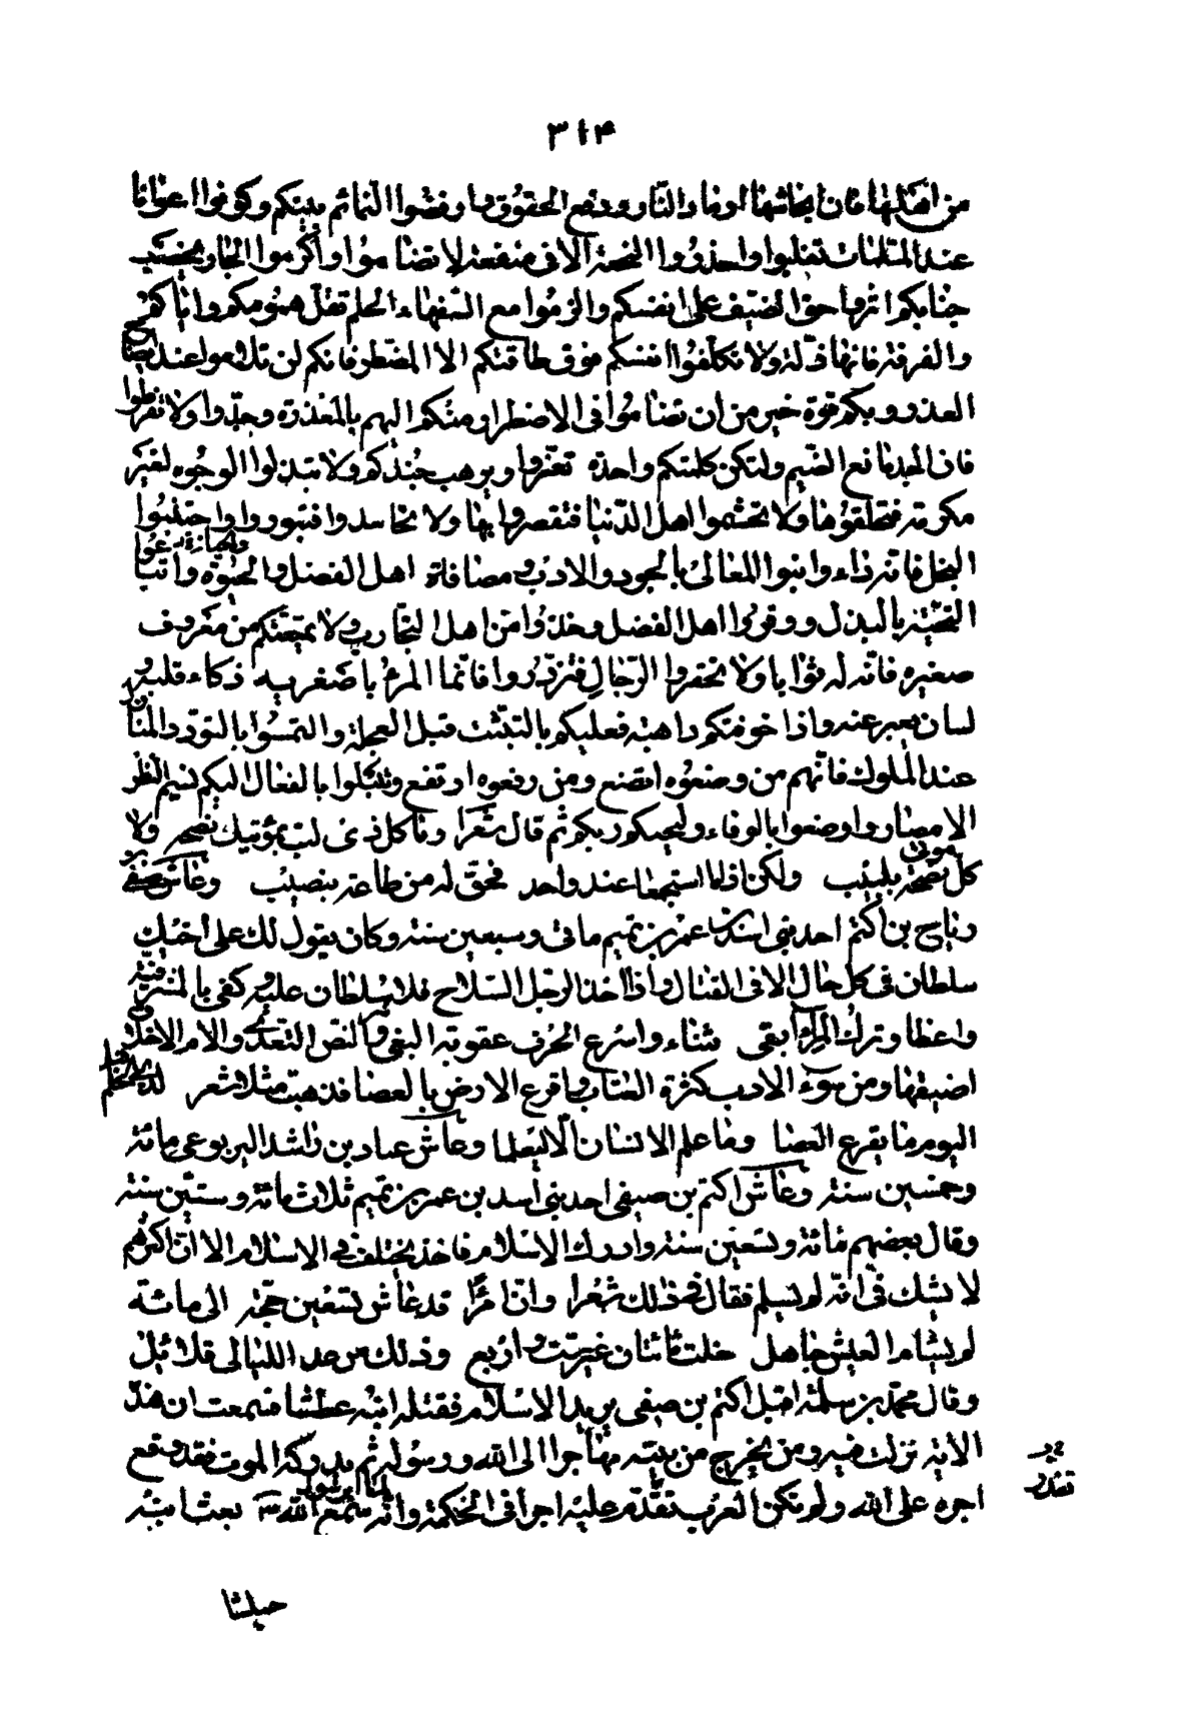 ٣١٤
من امثلها فان ايحاشها او قاد النار ودفع الحقوق وارفضوا النمائم بينكم وكونوا اعوانا
عند الملمات تغلبوا واحذروا النجعة الا فى منفعة لا تضاموا واكرموا الجار يخصب
جنابكم اثروا حق الضيف على انفسكم والزموا مع السفهاء الحلم تقل همومكم واياكم
والفرقة فانها ذلة ولا تكلفوا انفسكم فوق طاقتكم الا المضطر فانكم لن تلاموا عند
العذر وبكم قوة خير من ان تضاموا فى الاضطرار منكم اليهم بالمعذرة وجدوا ولا تفرطوا
فان الجد مانع الضيم ولتكن كلمتكم واحدة تعزوا ويرهب جندكم ولا تبذلوا الوجوه لغير
مكرمة فتخلقوها ولا تجشموا اهل الدنيا فتقصروا بها ولا تحاسدوا فتبوروا واجتنبوا
البخل فانه داء وابنوا المعالى بالجود والادب ومصافاة اهل الفضل والحياة وابتاعوا
المحبة بالبذل ووقروا اهل الفضل وخذوا من اهل التجارب ولا يمنعنكم من معروف
صغيره فان له ثوابا ولا تحقروا الرجال فتزدروا فانما المرء باصغريه ذكاء قلبه و
لسان يعبر عنه واذا خوفتكم داهية فعليكم بالتثبت قبل العجلة والتمسوا بالتودد المنازل
عند الملوك فانهم من وضعوه اتضع ومن رفعوه ارتفع وتنبلوا بالفعال اليكم تسم النظر
الامصار واوضعوا بالوفاء وليحبكم ربكم ثم قال شعرا وما كل ذى لب بمؤتيك نصحه ولا
كل موت نصحه بلبيب ولكن اذا ما استجمعا عند واحد فحق له من طاعة بنصيب وعاش صيفى
بن رياح بن اكثم احد بنى اسد بن عمر بن تميم مأتى وسبعين سنة وكان يقول لك على اخيك
سلطان فى كل حال الا فى القتال واذا اخذ الرجل السلاح فلا سلطان عليه وكفى بالمشرفية
واعظا وترك المراء ابقى ثناء واسرع الجرم عقوبة البغى وشر النصر التعدى والام الاخلاق
اضيقها ومن سوء الادب كثرة العتاب واقرع الارض بالعصا فذهبت مثلا شعر لذى الحلم قبل
اليوم ما يقرع العصا وما علم الانسان الا ليعلما وعاش عباد بن راشد اليربوعى مائة
وخمسين سنة وعاش اكثم بن صيفى احد بنى اسد بن عمر بن تميم ثلاث مائة وستين سنة
وقال بعضهم مائة وتسعين سنة وادرك الاسلام فاختلف فى الاسلام الا ان اكثرهم
لا يشك فى انه لم يسلم فقال فى ذلك شعرا وان امرءا قد عاش تسعين حجة الى مائة
لم يسام العيش جاهل خلت مائتان غير ست واربع وذلك من عد الليالى قلائل
وقال محمد بن سلمة اقبل اكثم بن صيفى يريد الاسلام فقتله ابنه عطشا فسمعت ان هذه
الاية نزلت فيه ومن يخرج من بيته مهاجرا الى الله ورسوله ثم يدركه الموت فقد وقع
اجره على الله ولم تكن العرب تقدم عليه احدا فى الحكمة وانه لما سمع برسول الله ص بعث ابنه
حبيشا